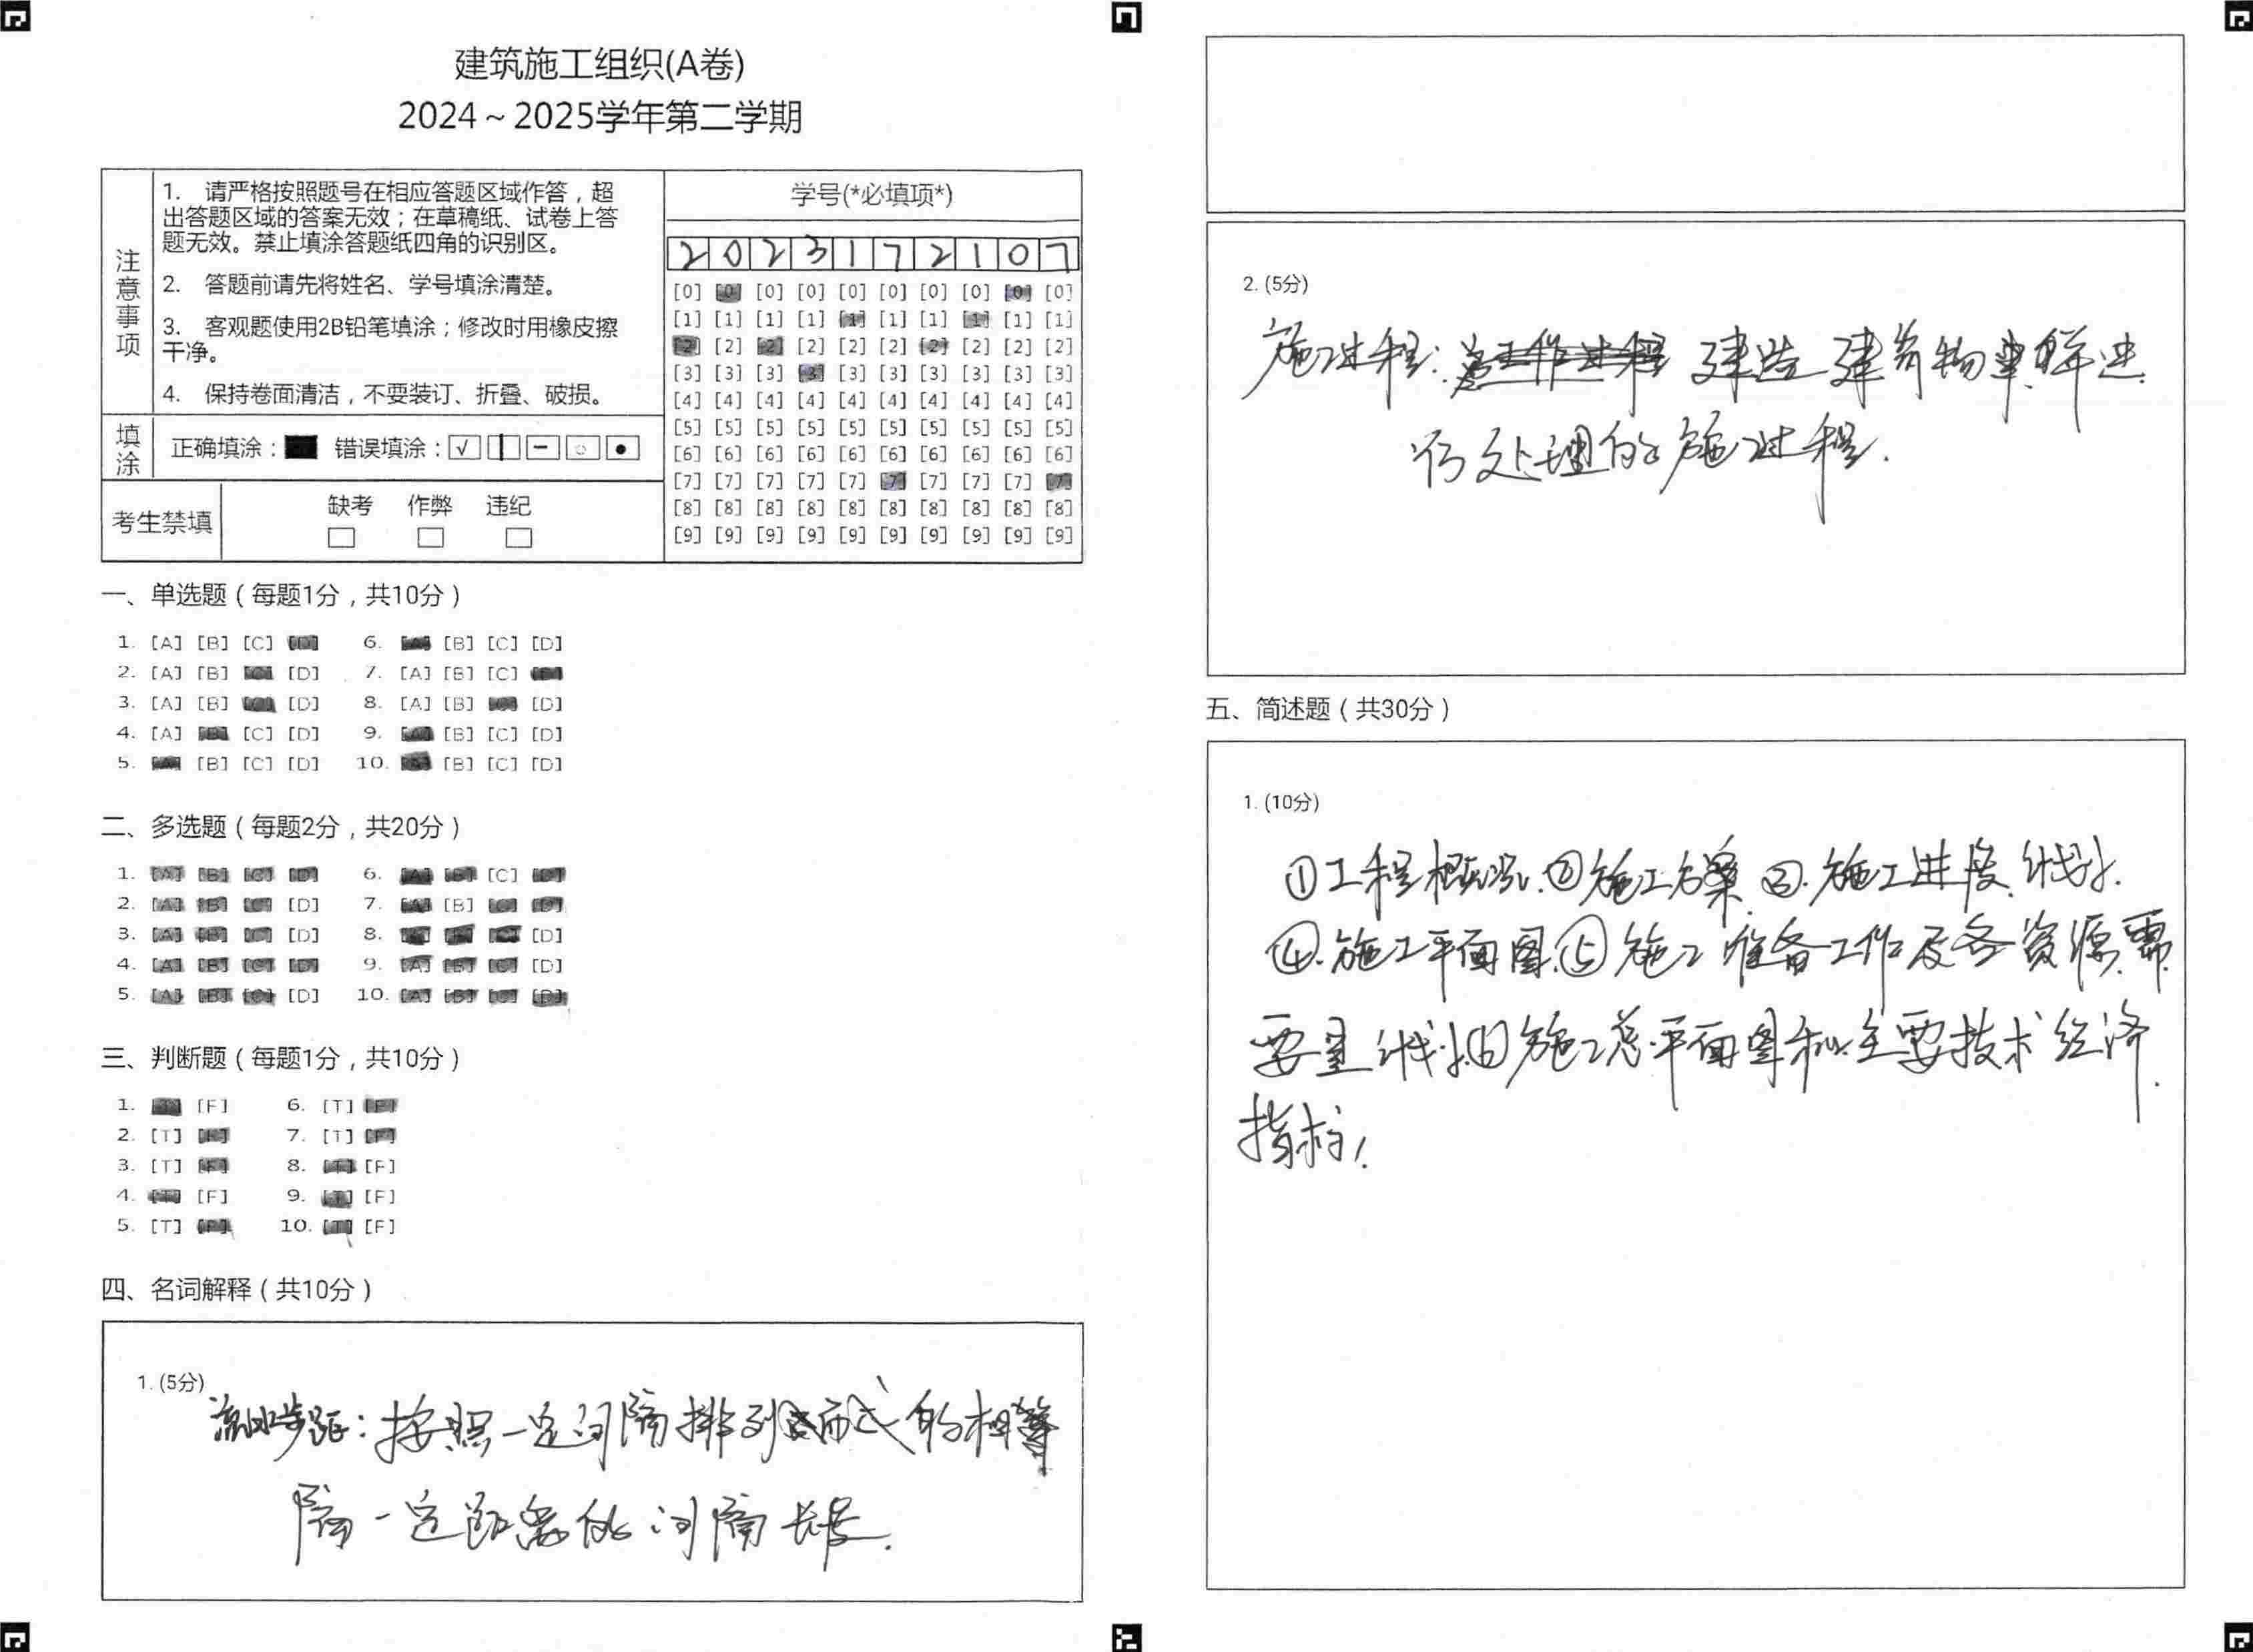 建筑施工组织(A卷)
2024～2025学年第二学期
注意事项
1. 请严格按照题号在相应答题区域作答，超
出答题区域的答案无效；在草稿纸、试卷上答
题无效。禁止填涂答题纸四角的识别区。
2. 答题前请先将姓名、学号填涂清楚。
3. 客观题使用2B铅笔填涂；修改时用橡皮擦
干净。
4. 保持卷面清洁，不要装订、折叠、破损。
填涂
正确填涂： 错误填涂：
考生禁填
缺考 作弊 违纪
学号(*必填项*)
2 0 2 3 1 7 2 1 0 7
[0] [0] [0] [0] [0] [0] [0] [0] [0] [0]
[1] [1] [1] [1] [1] [1] [1] [1] [1] [1]
[2] [2] [2] [2] [2] [2] [2] [2] [2] [2]
[3] [3] [3] [3] [3] [3] [3] [3] [3] [3]
[4] [4] [4] [4] [4] [4] [4] [4] [4] [4]
[5] [5] [5] [5] [5] [5] [5] [5] [5] [5]
[6] [6] [6] [6] [6] [6] [6] [6] [6] [6]
[7] [7] [7] [7] [7] [7] [7] [7] [7] [7]
[8] [8] [8] [8] [8] [8] [8] [8] [8] [8]
[9] [9] [9] [9] [9] [9] [9] [9] [9] [9]
一、单选题（每题1分，共10分）
1. [A] [B] [C] [D] 6. [A] [B] [C] [D]
2. [A] [B] [C] [D] 7. [A] [B] [C] [D]
3. [A] [B] [C] [D] 8. [A] [B] [C] [D]
4. [A] [B] [C] [D] 9. [A] [B] [C] [D]
5. [A] [B] [C] [D] 10. [A] [B] [C] [D]
二、多选题（每题2分，共20分）
1. [A] [B] [C] [D] 6. [A] [B] [C] [D]
2. [A] [B] [C] [D] 7. [A] [B] [C] [D]
3. [A] [B] [C] [D] 8. [A] [B] [C] [D]
4. [A] [B] [C] [D] 9. [A] [B] [C] [D]
5. [A] [B] [C] [D] 10. [A] [B] [C] [D]
三、判断题（每题1分，共10分）
1. [T] [F] 6. [T] [F]
2. [T] [F] 7. [T] [F]
3. [T] [F] 8. [T] [F]
4. [T] [F] 9. [T] [F]
5. [T] [F] 10. [T] [F]
四、名词解释（共10分）
1. (5分)
流水步距：按照一定间隔排列而成的相等
隔一定距离的间隔长度.
2. (5分)
施工过程： 建造建筑物鲜进
行处理的施工过程.
五、简述题（共30分）
1. (10分)
①工程概况.②施工方案.③.施工进度计划.
④.施工平面图.⑤施工准备工作及各资源需
要量计划.⑥施工总平面图和主要技术经济
指标.